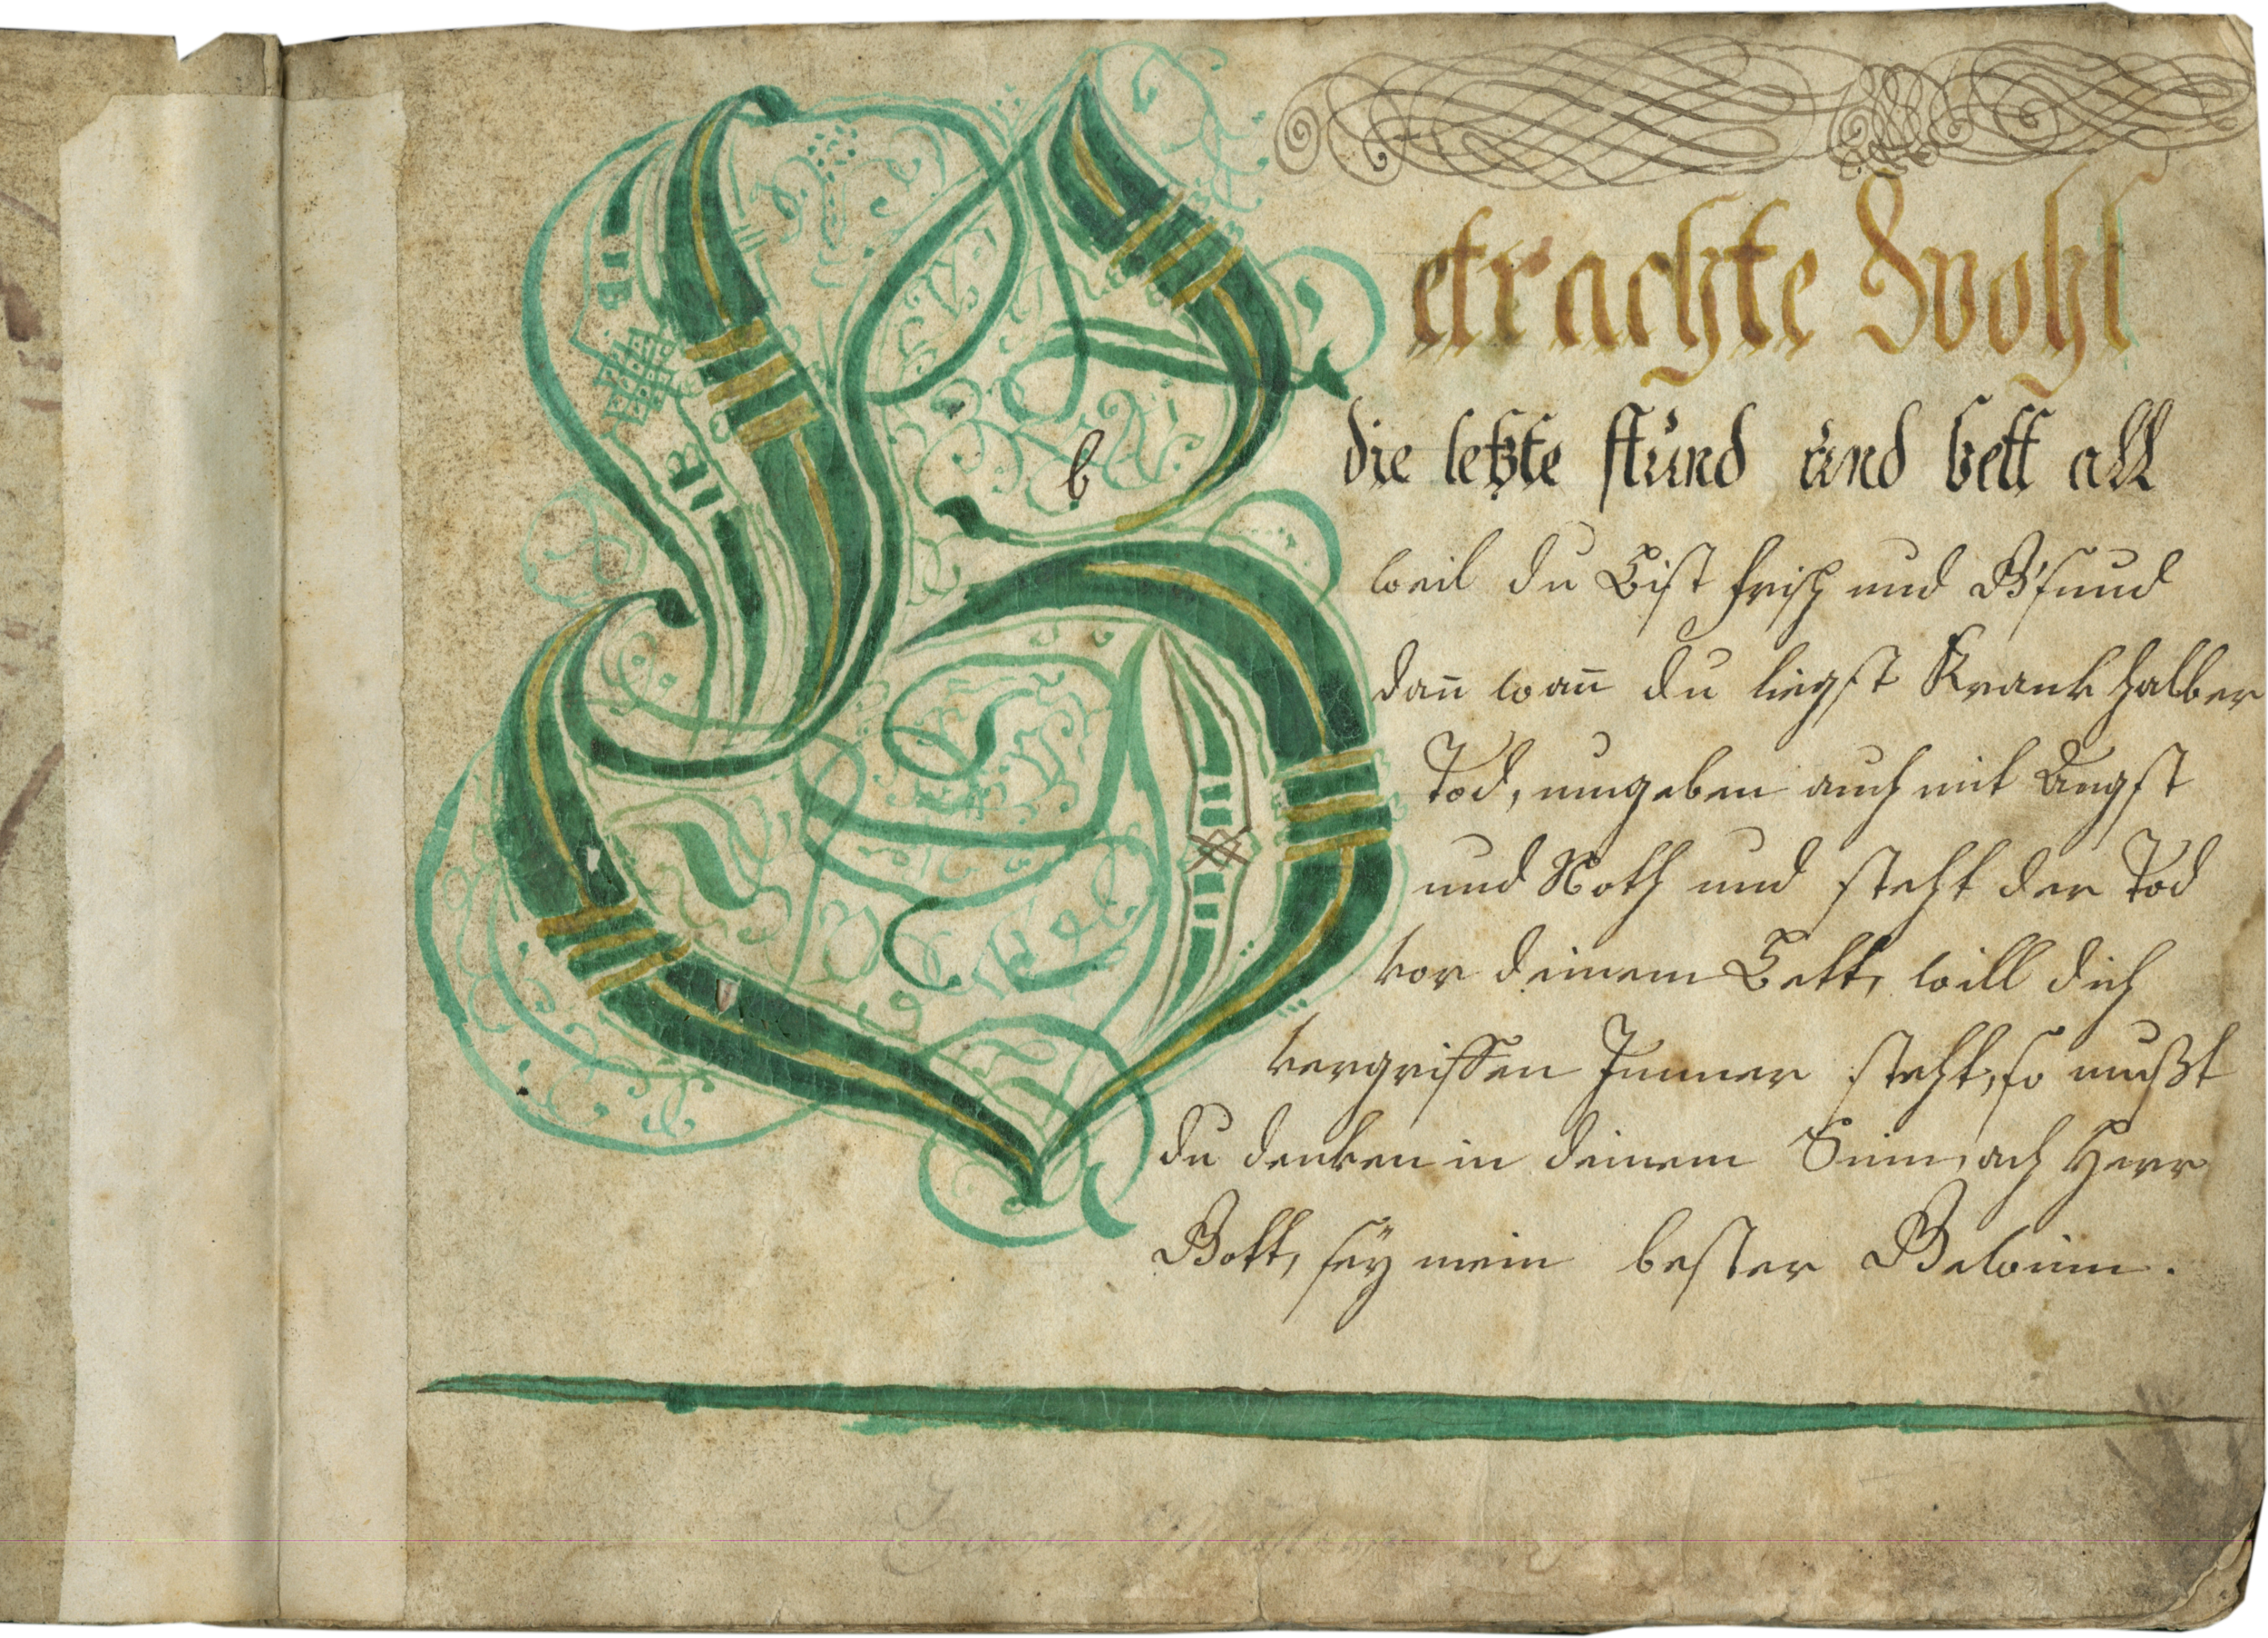 Betrachte Wohl
b
die letzte stund und bett all
weil du Bist frisch und G'sund
dan̄ wan̄ du liegst Krank halber
Tod, umgeben auch mit Angst
und Noth und steht der Tod
vor deinem Bett, will dich
vergriffen Immer steht, so mußt
du denken in deinem Sinn, ach Herr
Gott, seÿ mein bester Gewinn.